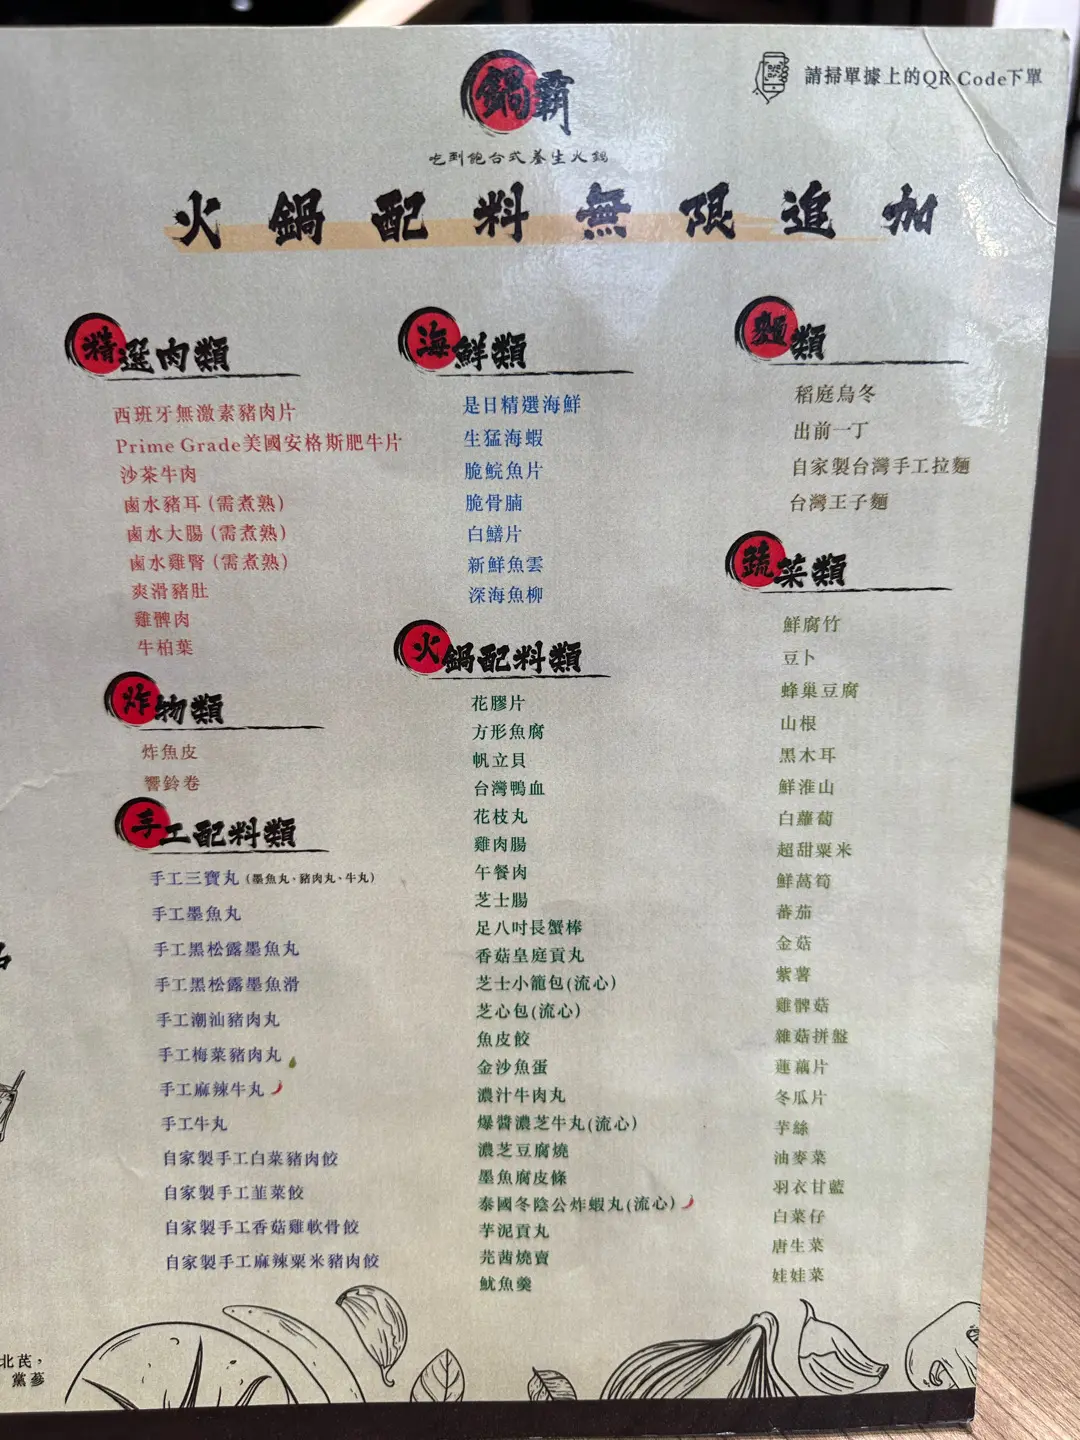 請掃單據上的QR Code下單
鍋霸
吃到飽台式養生火鍋
火鍋配料無限追加
精選肉類
西班牙無激素豬肉片
Prime Grade美國安格斯肥牛片
沙茶牛肉
鹵水豬耳 (需煮熟)
鹵水大腸 (需煮熟)
鹵水雞腎 (需煮熟)
爽滑豬肚
雞髀肉
牛柏葉
炸物類
炸魚皮
響鈴卷
手工配料類
手工三寶丸 (墨魚丸、豬肉丸、牛丸)
手工墨魚丸
手工黑松露墨魚丸
手工黑松露墨魚滑
手工潮汕豬肉丸
手工梅菜豬肉丸
手工麻辣牛丸
手工牛丸
自家製手工白菜豬肉餃
自家製手工韮菜餃
自家製手工香菇雞軟骨餃
自家製手工麻辣粟米豬肉餃
海鮮類
是日精選海鮮
生猛海蝦
脆鯇魚片
脆骨腩
白鱔片
新鮮魚雲
深海魚柳
火鍋配料類
花膠片
方形魚腐
帆立貝
台灣鴨血
花枝丸
雞肉腸
午餐肉
芝士腸
足八吋長蟹棒
香菇皇庭貢丸
芝士小籠包(流心)
芝心包(流心)
魚皮餃
金沙魚蛋
濃汁牛肉丸
爆醬濃芝牛丸(流心)
濃芝豆腐燒
墨魚腐皮條
泰國冬陰公炸蝦丸(流心)
芋泥貢丸
芫茜燒賣
魷魚羹
麵類
稻庭烏冬
出前一丁
自家製台灣手工拉麵
台灣王子麵
蔬菜類
鮮腐竹
豆卜
蜂巢豆腐
山根
黑木耳
鮮淮山
白蘿蔔
超甜粟米
鮮萵筍
蕃茄
金菇
紫薯
雞髀菇
雜菇拼盤
蓮藕片
冬瓜片
芋絲
油麥菜
羽衣甘藍
白菜仔
唐生菜
娃娃菜
北芪，
黨蔘